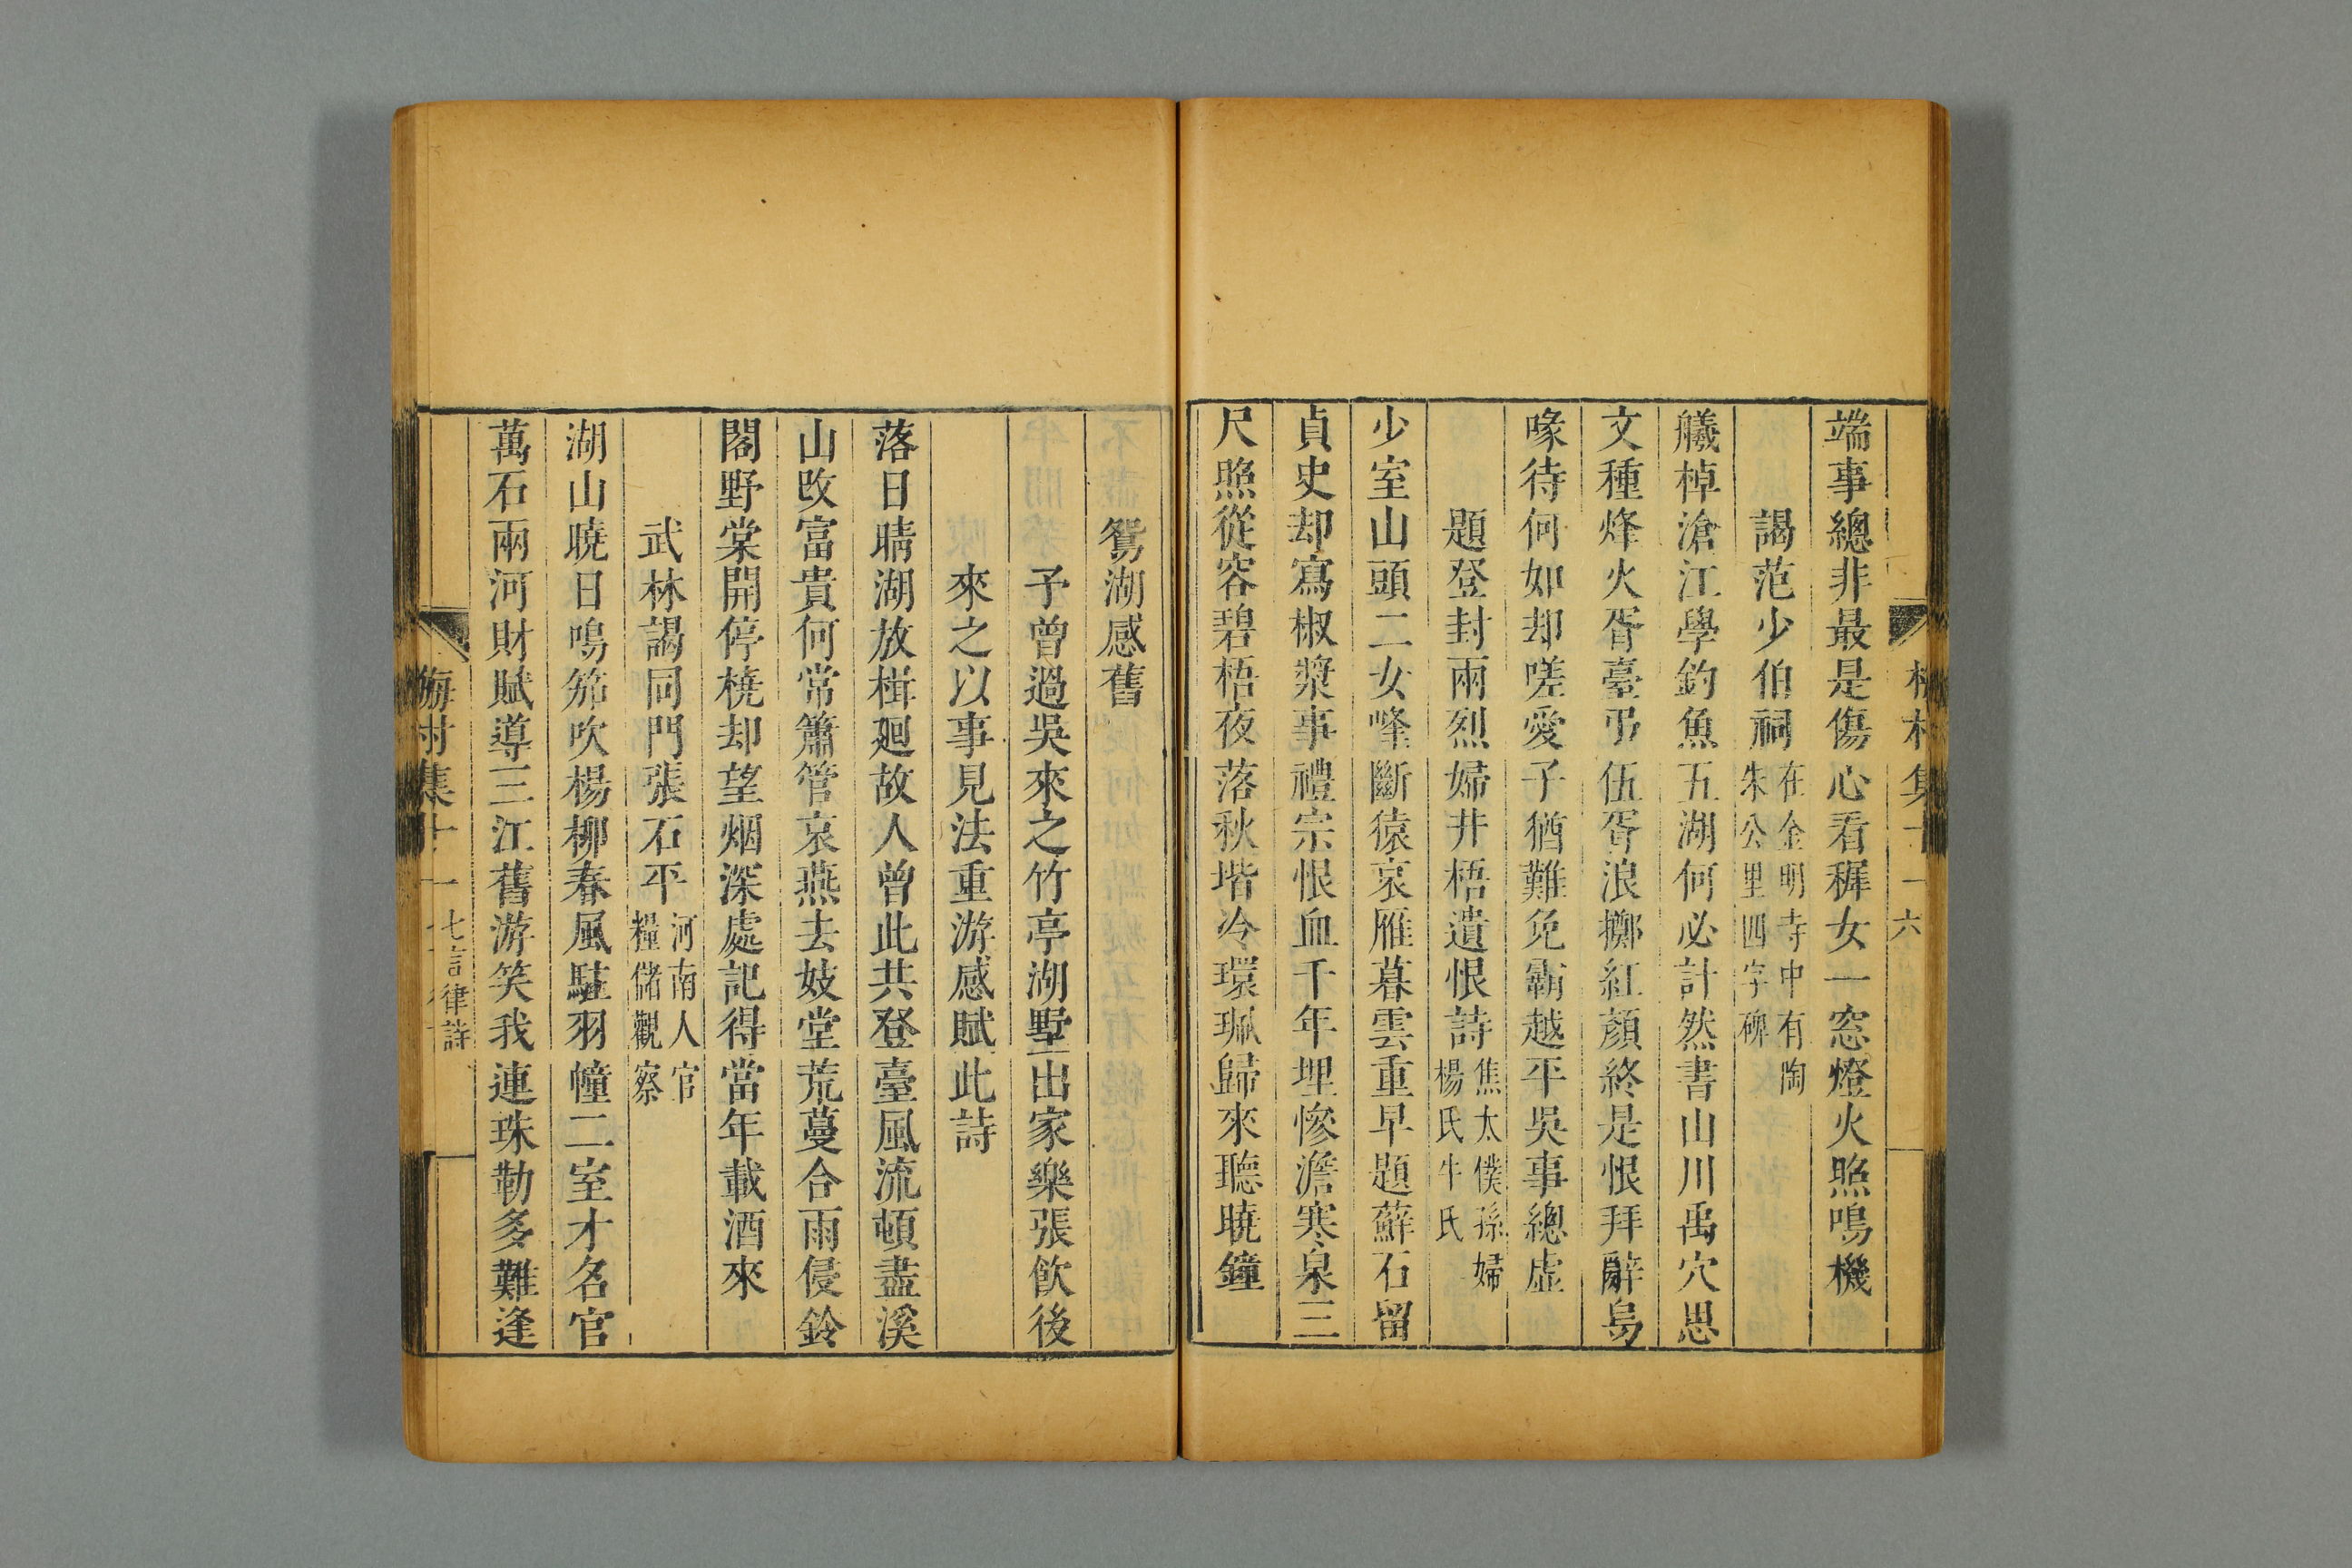 端事總非最是傷心看稺女一窓燈火照鳴機
謁范少伯祠在金明寺中有陶朱公里四字碑
艤棹滄江學釣魚五湖何必計然書山川禹穴思
文種烽火胥臺弔伍胥浪擲紅顏終是恨拜辭烏
喙待何如却嗟愛子猶難免霸越平吳事總虛
題登封兩烈婦井梧遺恨詩焦太僕孫婦楊氏牛氏
少室山頭二女峰斷猿哀雁暮雲重早題蘚石留
貞史却寫椒漿事禮宗恨血千年埋慘澹寒泉三
尺照從容碧梧夜落秋堦冷環珮歸來聽曉鐘
六
鴛湖感舊
予曾過吳來之竹亭湖墅出家樂張飲後
來之以事見法重游感賦此詩
落日晴湖放楫廻故人曾此共登臺風流頓盡溪
山改富貴何常簫管哀燕去妓堂荒蔓合雨侵鈴
閣野棠開停橈却望烟深處記得當年載酒來
武林謁同門張石平河南人官糧儲觀察
湖山曉日鳴笳吹楊柳春風駐羽幢二室才名官
萬石兩河財賦導三江舊游笑我連珠勒多難逢
梅村集十一 七言律詩